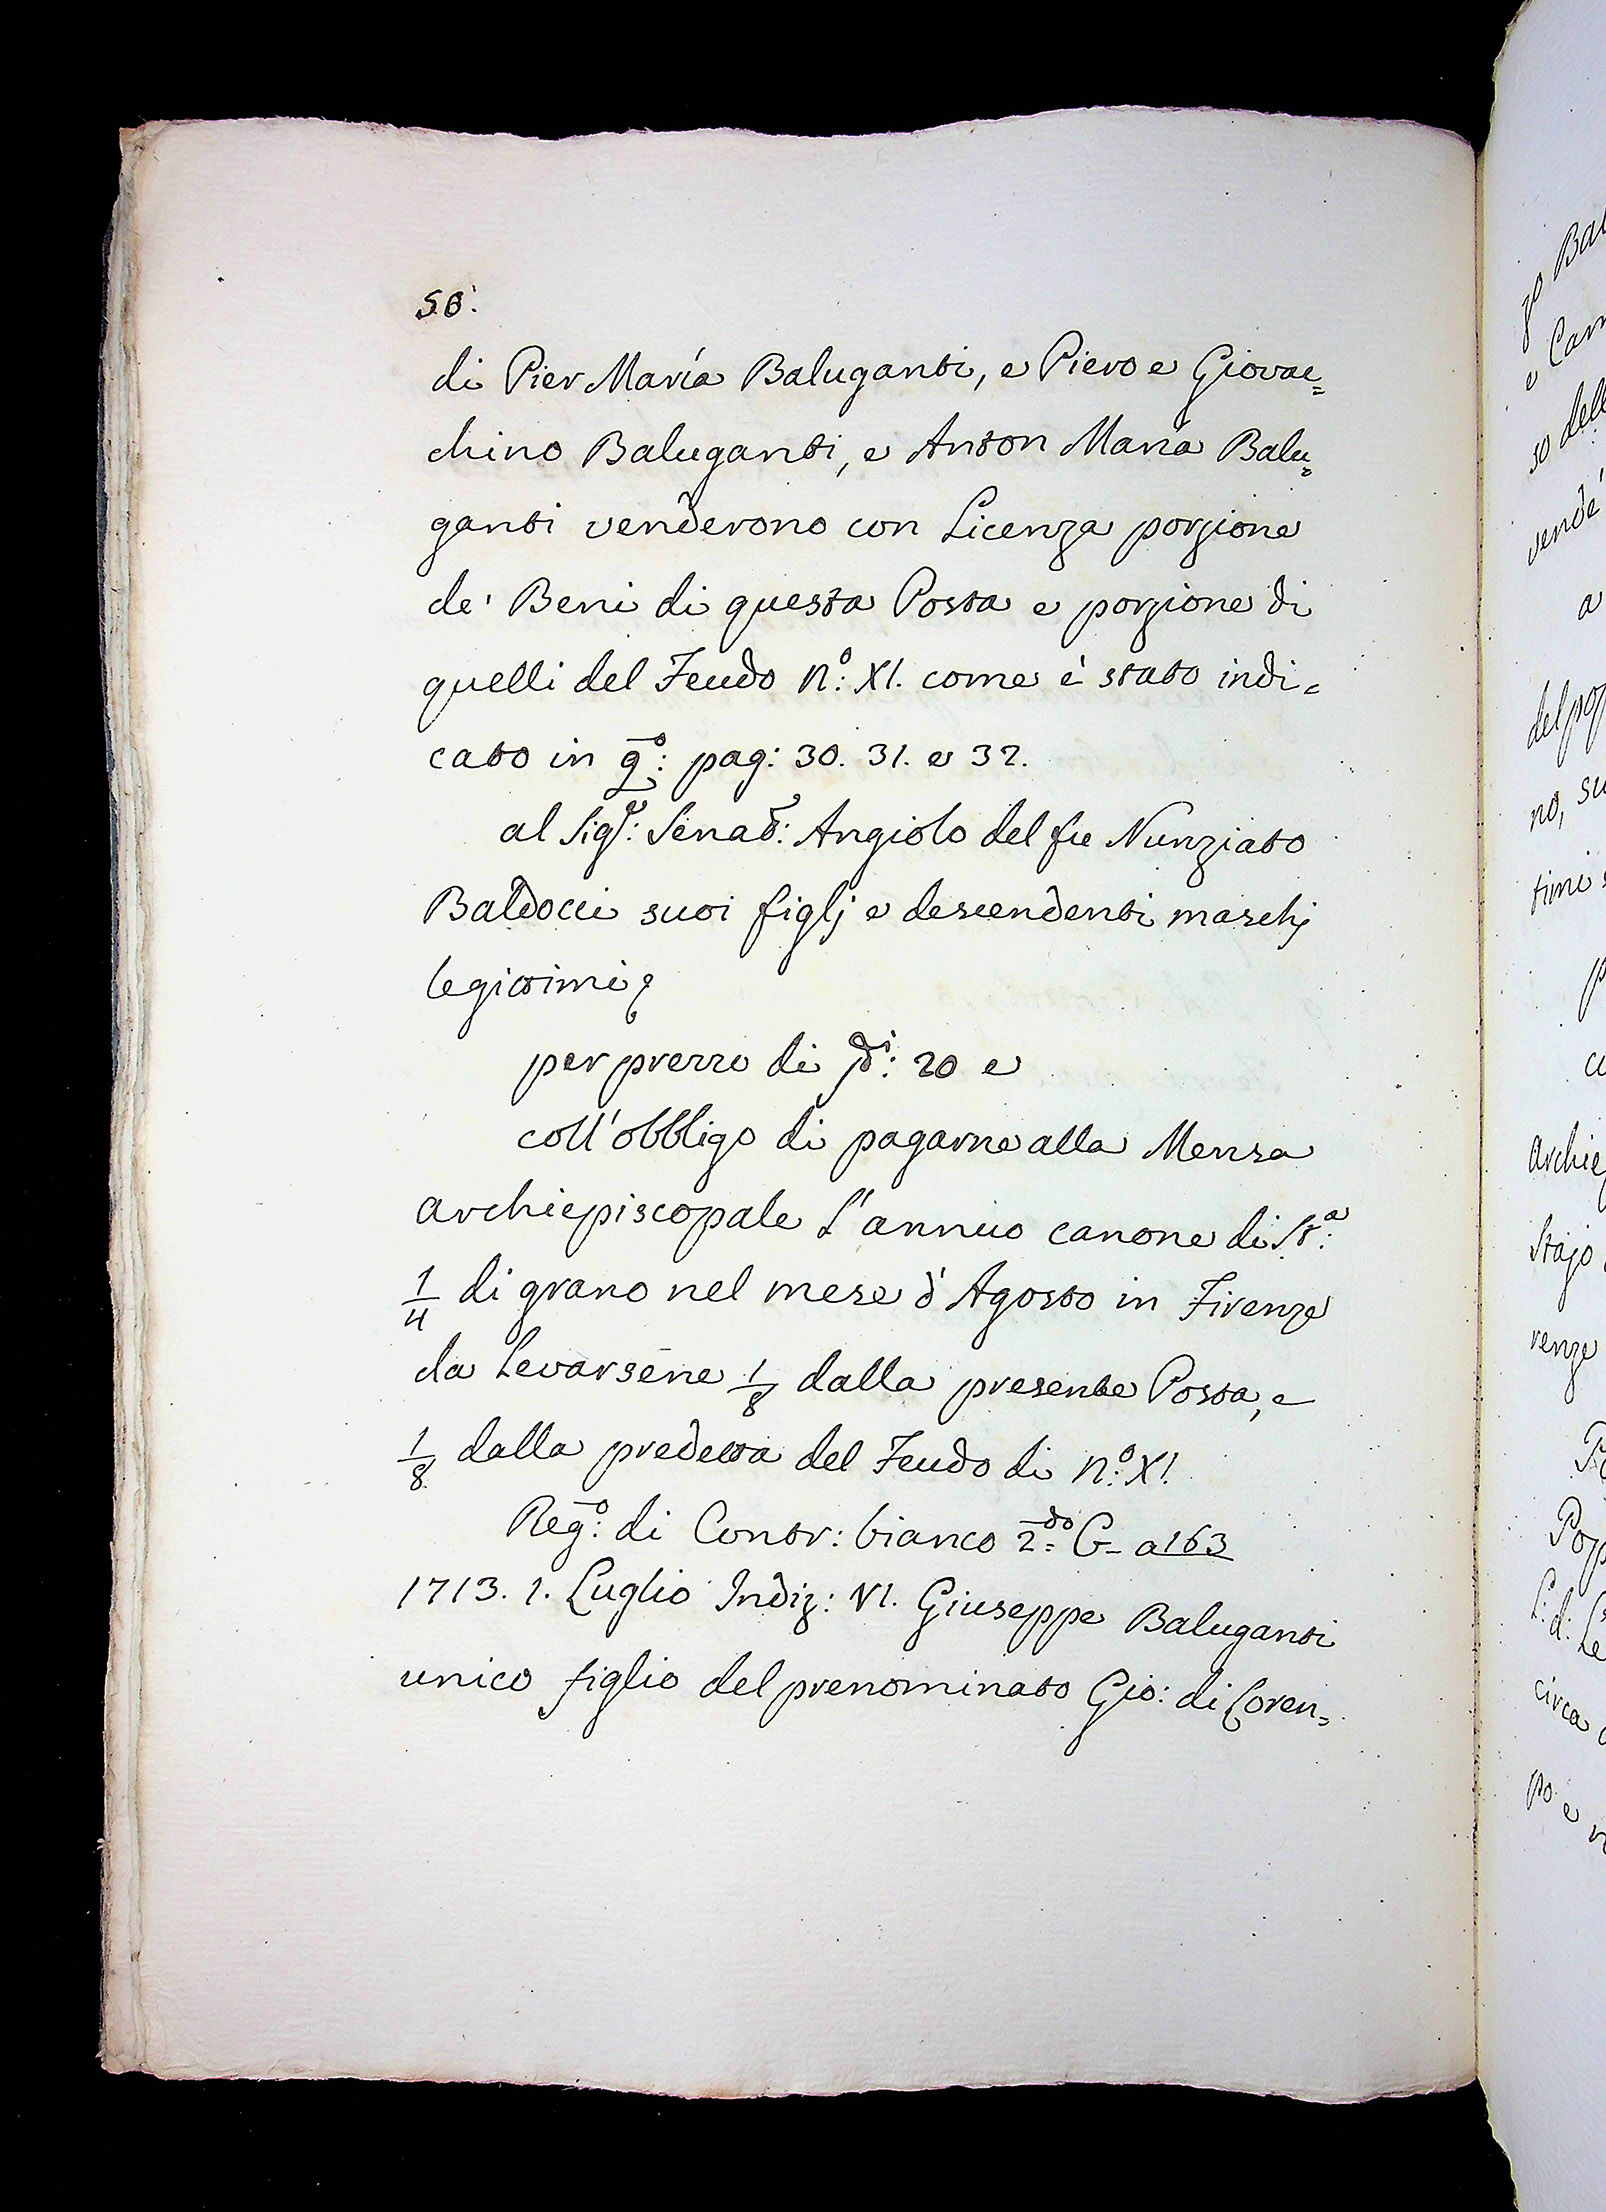 56.
di Pier Maria Baluganti, e Piero e Giovac=
chino Baluganti, e Anton Maria Balu=
ganti venderono con Licenza porzione
de' Beni di questa Posta e porzione di
quelli del Feudo n.º XI. come è stato indi=
cato in q.º: pag: 30. 31. e 32.
al Sig.r: Senat.r: Angiolo del fu Nunziato
Baldocci suoi figlj e descendenti maschj
legittimi
per prezzo di 20 e
coll'obbligo di pagarne alla Mensa
Archiepiscopale l'annuo canone di St.a:
1/4 di grano nel mese d'Agosto in Firenze
da Levarsene 1/8 dalla presente Posta, e
1/8 dalla predetta del Feudo di n.º XI.
Reg.º: di Contr: bianco 2.do G- a 163
1713. 1. Luglio Indiz: VI. Giuseppe Baluganti
unico figlio del prenominato Gio: di Loren=
zo Bal
e Cam
so dell
vendè
a
del pop
no, su
timi
p
Archie
Stajo
renze
circa
po e